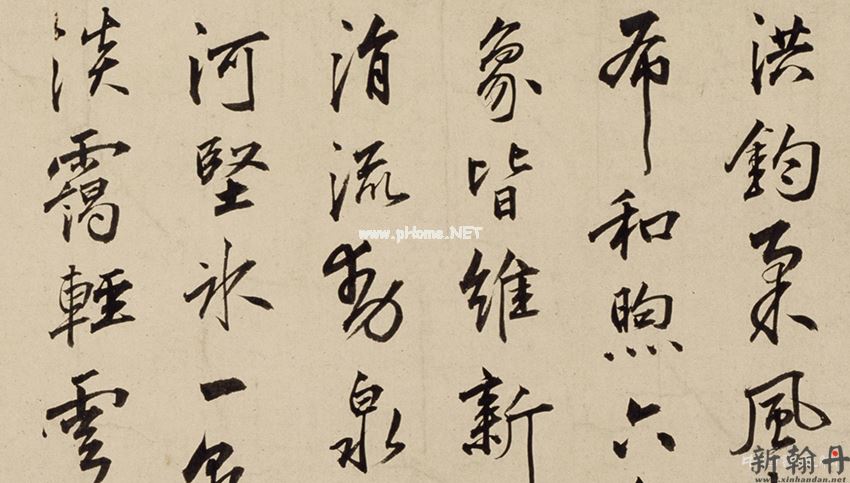 洪鈞柔風
布和煦六
象皆維新
涓流動泉
河堅冰一
淡靄輕雲
www.pHome.NET
新翰丹
www.xinhandan.net